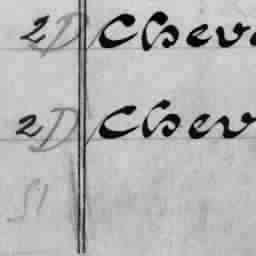 2D Chev
2D Chev